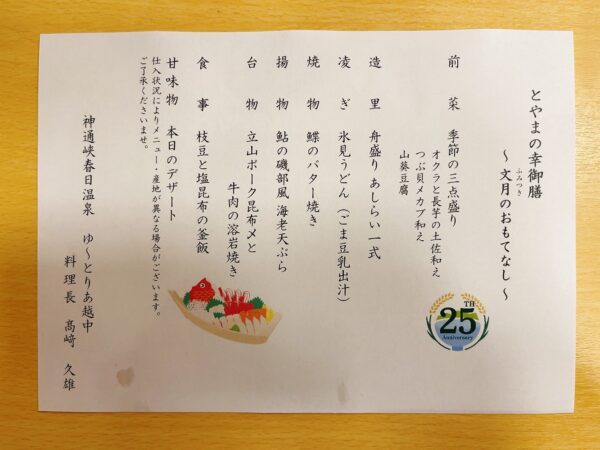 とやまの幸御膳
ふみつき
～ 文月のおもてなし ～
前菜 季節の三点盛り
オクラと長芋の土佐和え
つぶ貝メカブ和え
山葵豆腐
造里 舟盛り あしらい一式
凌ぎ 氷見うどん（ごま豆乳出汁）
焼物 鰈のバター焼き
揚物 鮎の磯部風 海老天ぷら
台物 立山ポーク昆布〆と
牛肉の溶岩焼き
食事 枝豆と塩昆布の釜飯
甘味物 本日のデザート
仕入状況によりメニュー・産地が異なる場合がございます。
ご了承くださいませ。
神通峡春日温泉 ゆ～とりあ越中
料理長 高﨑 久雄
25TH
Anniversary